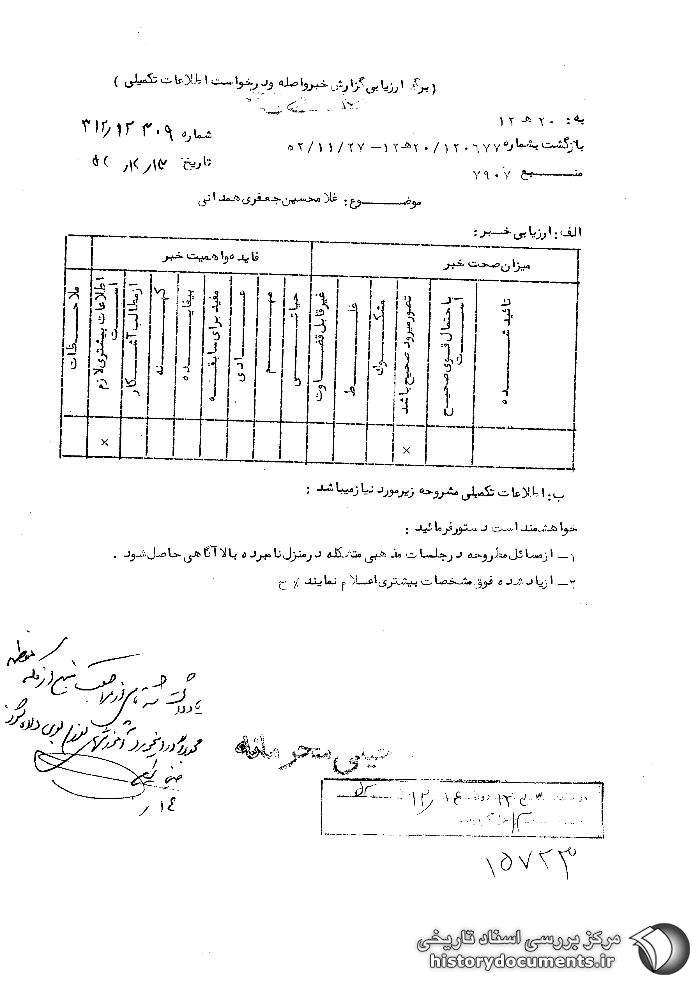 (برگ ارزیابی گزارش خبر واصله و درخواست اطلاعات تکمیلی)
به: ۲۰ هـ ۱۲
شماره ۳۱۲/۱۲۳۰۹
بازگشت بشماره ۱۲۰۶۷۷/۲۰هـ۱۲ – ۵۲/۱۱/۲۷
تاریخ ۵۲/۱۲/۱۳
منبع ۷۹۰۷
موضوع: غلامحسین جعفری همدانی
الف: ارزیابی خبر:
میزان صحت خبر
فایده و اهمیت خبر
تائید شده
باحتمال قوی صحیح است
تصور میرود صحیح باشد
مشکوک
غلط
غیر قابل قضاوت
حیاتی
مهم
عادی
مفید برای سابقه
بیفایده
کهنه
از مطالب آشکار
اطلاعات بیشتری لازم است
ملاحظات
×
×
ب: اطلاعات تکمیلی مشروحه زیر مورد نیاز میباشد:
خواهشمند است دستور فرمائید:
۱– از مسائل مطروحه در جلسات مذهبی متشکله در منزل نامبرده بالا آگاهی حاصل شود.
۲– از یاد شده فوق مشخصات بیشتری اعلام نمایند٪ ح
خیلی محرمانه
۱۴/
۱۲/۱۴
۱۵۷۲۳
مرکز بررسی اسناد تاریخی
historydocuments.ir